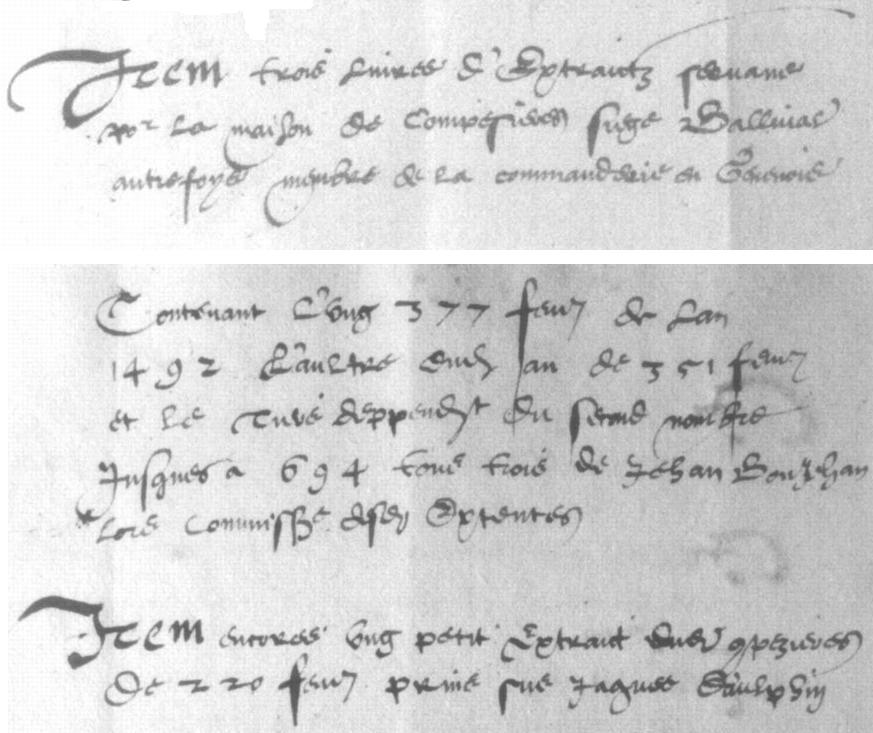 Item trois livres d'Extraictz servans
por la maison de Compesieres siege Ballivial
autrefoys membre de la commanderie en Genevois
Contenant l'ung 377 feuz de lan
1492 l'aultre dudt an de 351 feuz
et le tiers deppendt du second nombre
Jusques a 694 tous trois de Jehan Bonjehan
lors Commisse desd Extentes
Item encores ung petit Extraict dud Compezieres
De 220 feuz prins sur Jaques Daulphin